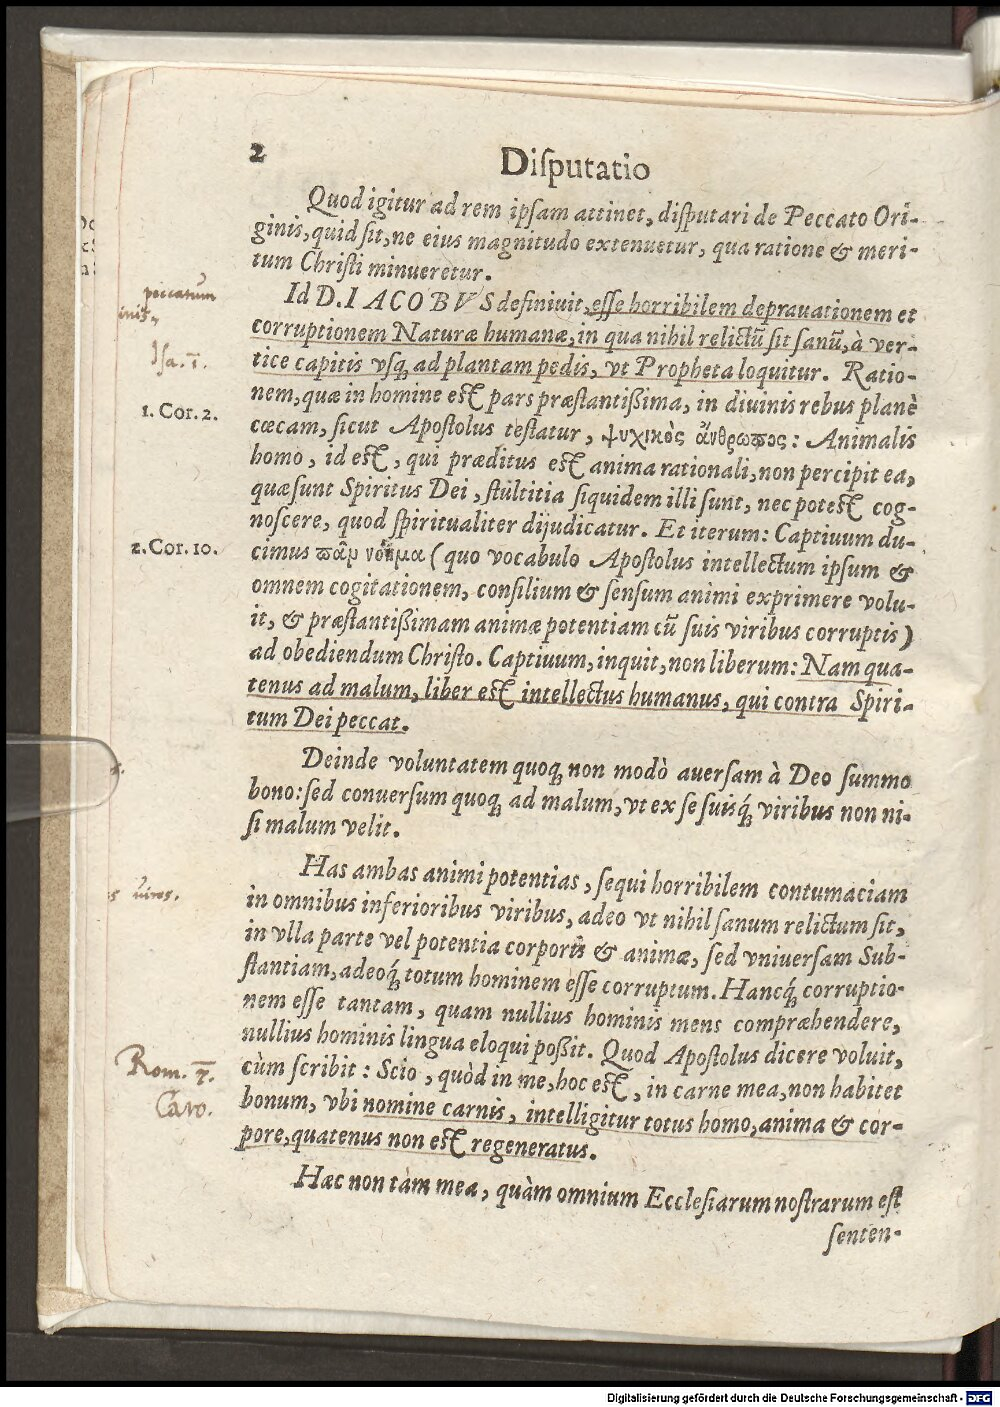 2
Diſputatio
Quod igitur ad rem ipſam attinet, diſputari de Peccato Ori-
ginis, quid ſit, ne eius magnitudo extenuetur, qua ratione & meri-
tum Chriſti minueretur.
Id D. IACOBVS definiuit, eſſe horribilem deprauationem et
corruptionem Naturæ humanæ, in qua nihil relictũ ſit ſanũ, à ver-
tice capitis vſq; ad plantam pedis, vt Propheta loquitur. Ratio-
nem, quæ in homine eſt pars præſtantißima, in diuinis rebus planè
cæcam, ſicut Apoſtolus teſtatur, ψυχικὸς ἄνθρωπος: Animalis
homo, id eſt, qui præditus eſt anima rationali, non percipit ea,
quæ ſunt Spiritus Dei, ſtultitia ſiquidem illi ſunt, nec poteſt cog-
noſcere, quod ſpiritualiter dijudicatur. Et iterum: Captiuum du-
cimus πᾶμ νόημα (quo vocabulo Apoſtolus intellectum ipſum &
omnem cogitationem, conſilium & ſenſum animi exprimere volu-
it, & præſtantißimam animæ potentiam cũ ſuis viribus corruptis)
ad obediendum Chriſto. Captiuum, inquit, non liberum: Nam qua-
tenus ad malum, liber eſt intellectus humanus, qui contra Spiri-
tum Dei peccat.
Deinde voluntatem quoq; non modò auerſam à Deo ſummo
bono: ſed conuerſum quoq; ad malum, vt ex ſe ſuisq́; viribus non ni-
ſi malum velit.
Has ambas animi potentias, ſequi horribilem contumaciam
in omnibus inferioribus viribus, adeo vt nihil ſanum relictum ſit,
in vlla parte vel potentia corporis & animæ, ſed vniuerſam Sub-
ſtantiam, adeoq́; totum hominem eſſe corruptum. Hancq́; corruptio-
nem eſſe tantam, quam nullius hominis mens compræhendere,
nullius hominis lingua eloqui poßit. Quod Apoſtolus dicere voluit,
cùm ſcribit: Scio, quòd in me, hoc eſt, in carne mea, non habitet
bonum, vbi nomine carnis, intelligitur totus homo, anima & cor-
pore, quatenus non eſt regeneratus.
Hæc non tàm mea, quàm omnium Eccleſiarum noſtrarum eſt
ſenten-
peccatum
Iſa. 1.
1. Cor. 2.
2. Cor. 10.
vires.
Rom. 7.
Caro.
Digitalisierung gefördert durch die Deutsche Forschungsgemeinschaft - DFG